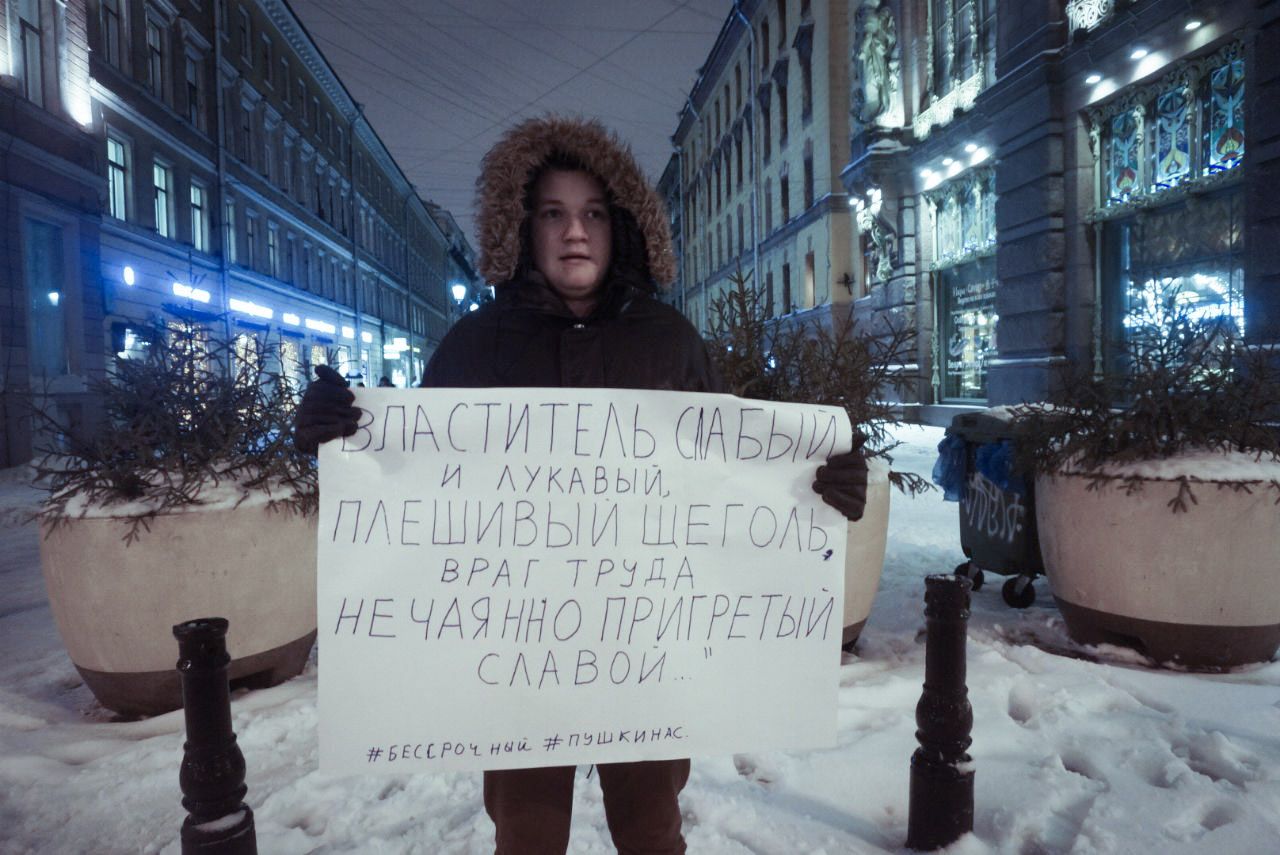 ВЛАСТИТЕЛЬ СЛАБЫЙ
И ЛУКАВЫЙ,
ПЛЕШИВЫЙ ЩЕГОЛЬ,
ВРАГ ТРУДА
НЕЧАЯННО ПРИГРЕТЫЙ
СЛАВОЙ..."
#БЕССРОЧНЫЙ #ПУШКИНАС.